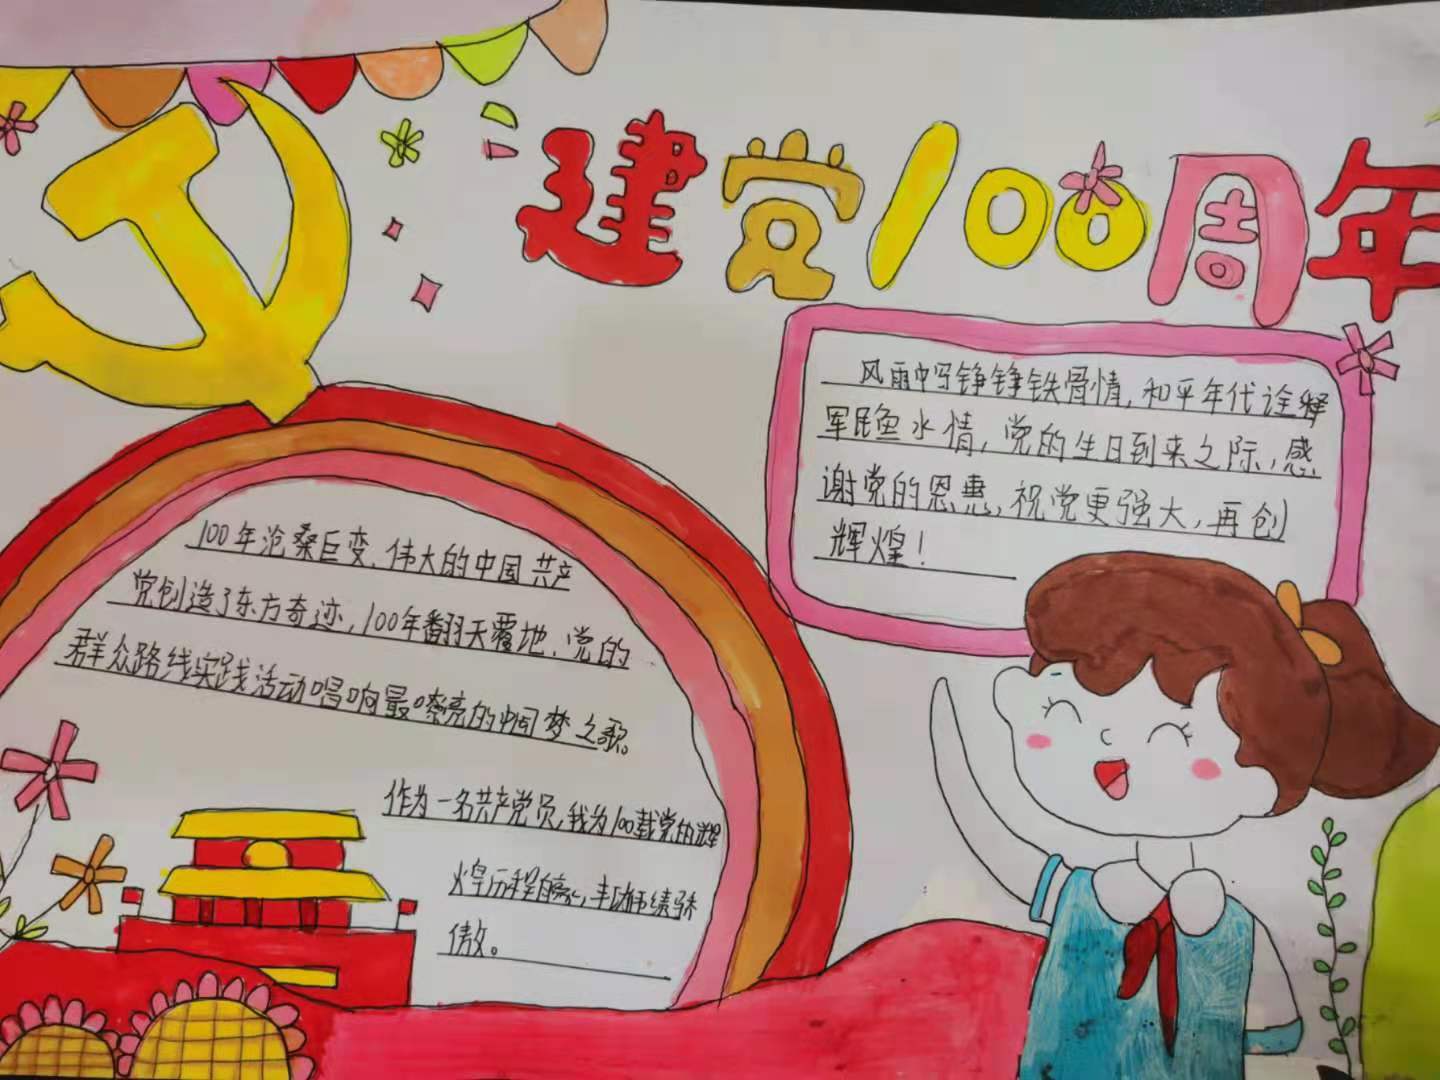 建党100周年
风雨中写铮铮铁骨情,和平年代诠释
军民鱼水情,党的生日到来之际,感
谢党的恩惠,祝党更强大,再创
辉煌!
100年沧桑巨变、伟大的中国共产
党创造了东方奇迹,100年翻天覆地、党的
群众路线实践活动唱响最嘹亮的中国梦之歌。
作为一名共产党员,我为100载党的辉
煌历程自豪、丰功伟绩骄
傲。